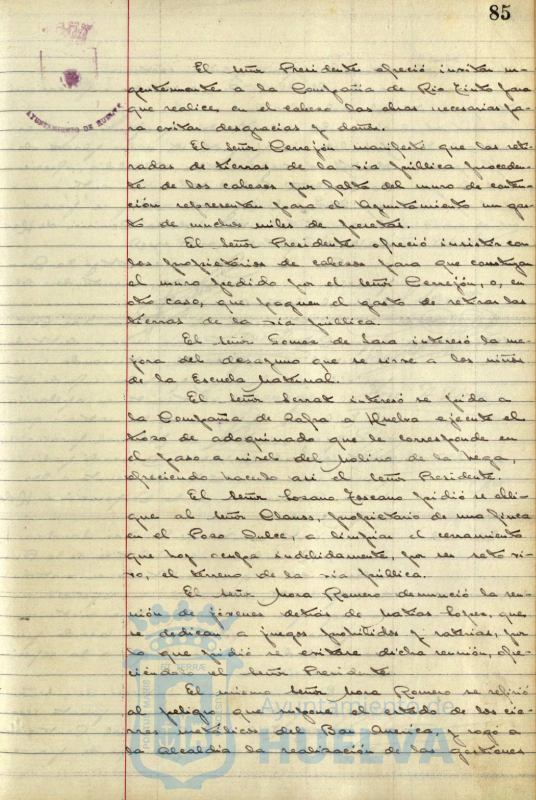 85
AYUNTAMIENTO DE HUELVA
El Señor Presidente ofreció invitar ur-
gentemente a la Compañia de Rio Tinto para
que realice en el cabezo las obras necesarias pa-
ra evitar desgracias y daños.
El Señor Cerrejón manifestó que las reti-
radas de tierras de la via pública proceden-
te de los cabezos por falta del muro de conten-
ción representan para el Ayuntamiento un gas-
to de muchos miles de pesetas.
El Señor Presidente ofreció insistir con
los propietarios de cabezos para que construyan
el muro pedido por el Señor Cerrejón, o, en
otro caso, que paguen el gasto de retirar las
tierras de la via pública.
El Señor Gomez de Lara interesó la me-
jora del desayuno que se sirve a los niños
de la Escuela Maternal.
El Señor Serrat interesó se pida a
la Compañia de Zafra a Huelva ejecute el
trozo de adoquinado que le corresponde en
el paso a nivel del Molino de la Vega,
ofreciendo hacerlo asi el Señor Presidente.
El Señor Lozano Toscano pidió se obli-
gue al Señor Clauss, propietario de una finca
en el Pozo Dulce, a limpiar el cerramiento
que hoy ocupa indebidamente, por ser seto vi-
vo, el terreno de la via pública.
El Señor Mora Romero denunció la reu-
nión de jóvenes detrás de Matias Lopez, que
se dedican a juegos prohibidos y raterias, por
lo que pidió se evitara dicha reunión, ofre-
ciéndolo el Señor Presidente.
El mismo Señor Mora Romero se refirió
al peligro que supone el estado de los cie-
rres metálicos del Bar America, y rogó a
la Alcaldia la realización de las gestiones
Ayuntamiento de
HUELVA